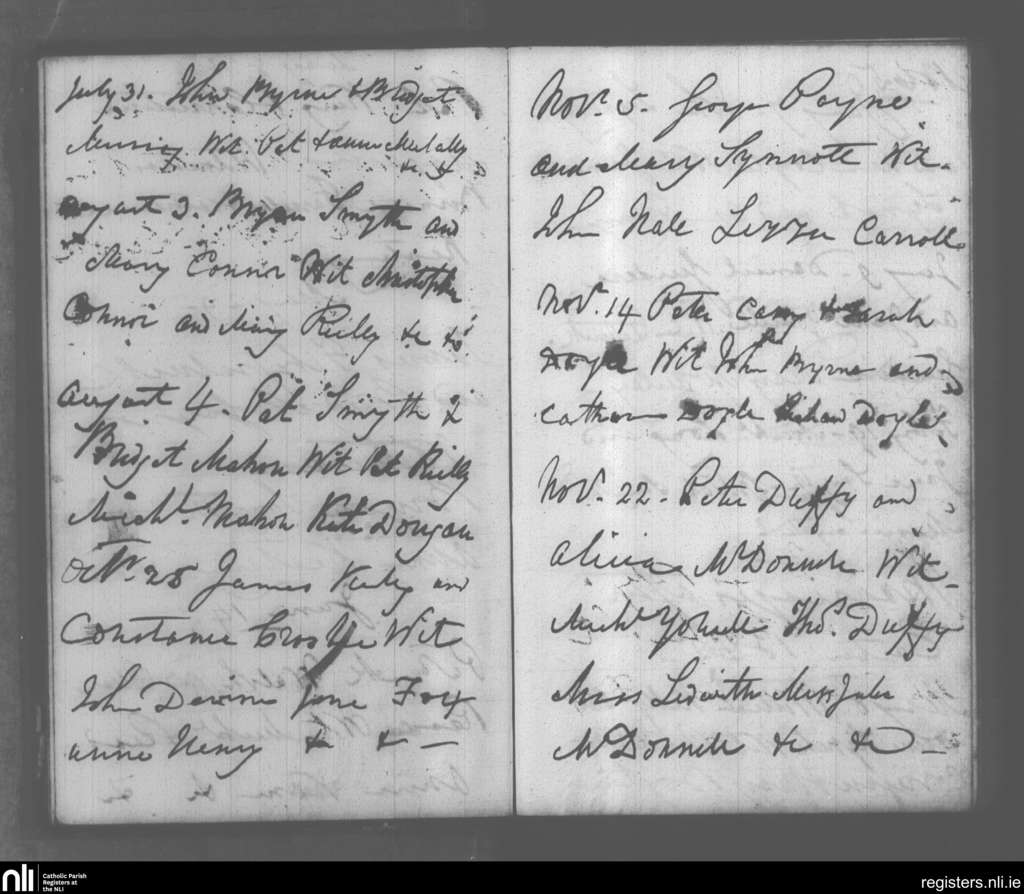 July 31. John Byrne & Bridget
Wit. Pat & Anne
&c &c
August 3. Bryan Smyth and
Mary Connor Wit Christopher
Connor and Mary Reilly &c &c
August 4. Pat Smyth &
Bridget Mahon Wit Pat Reilly
Michl. Mahon Kate Dongan
Octr. 25 James Kirby and
Constance Wit
John Devine Jane Fox
Anne Henry & & —
Novr. 5. George Payne
and Mary Synnott Wit.
John Nale Lizzie Carroll
Novr. 14 Peter Casey & Sarah
Doyle Wit John Byrne and
Catharn Doyle Doyle &c
Novr. 22. Peter Duffy and
Alicia McDonnell Wit
Michl. Yourell Thos. Duffy
Miss Ledwith Miss Julia
McDonnell &c &c —
nli
Catholic Parish
Registers at
the NLI
registers.nli.ie